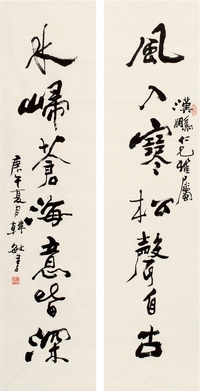 漢鵬仁兄雅屬
風入寒松聲自古
水歸蒼海意皆深
庚午夏月韓敏書